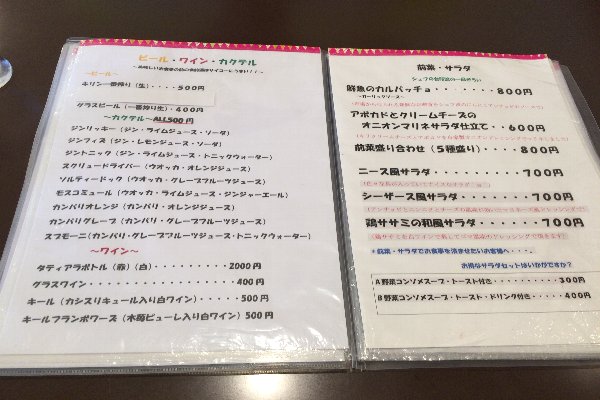 ビール・ワイン・カクテル
～ビール～
キリン一番搾り（生）・・・・500円
グラスビール（一番搾り生）・400円
～カクテル～ALL500円
ジンリッキー（ジン・ライムジュース・ソーダ）
ジンフィズ（ジン・レモンジュース・ソーダ）
ジントニック（ジン・ライムジュース・トニックウォーター）
スクリュードライバー（ウオッカ・オレンジジュース）
ソルティードック（ウオッカ・グレープフルーツジュース）
モスコミュール（ウオッカ・ライムジュース・ジンジャーエール）
カンパリオレンジ（カンパリ・オレンジジュース）
カンパリグレープ（カンパリ・グレープフルーツジュース）
スプモーニ（カンパリ・グレープフルーツジュース・トニックウォーター）
～ワイン～
タティアラボトル（赤）（白）・・・・・・・2000円
グラスワイン・・・・・・・・・・・・・400円
キール（カシスリキュール入り白ワイン）・・・・・500円
キールフランボワーズ（木苺ピューレ入り白ワイン）500円
前菜・サラダ
鮮魚のカルパッチョ・・・・・・・800円
～ガーリックソース～
アボカドとクリームチーズの
オニオンマリネサラダ仕立て・・600円
前菜盛り合わせ（5種盛り）・・・800円
ニース風サラダ・・・・・・・・・700円
シーザース風サラダ・・・・・・・700円
鶏ササミの和風サラダ・・・・・700円
＊前菜・サラダでお食事を済ませたいお客様へ・・・・
お得なサラダセットはいかがですか？
A野菜コンソメスープ・トースト付き・・・・・・・300円
B野菜コンソメスープ・トースト・ドリンク付き・・・・400円